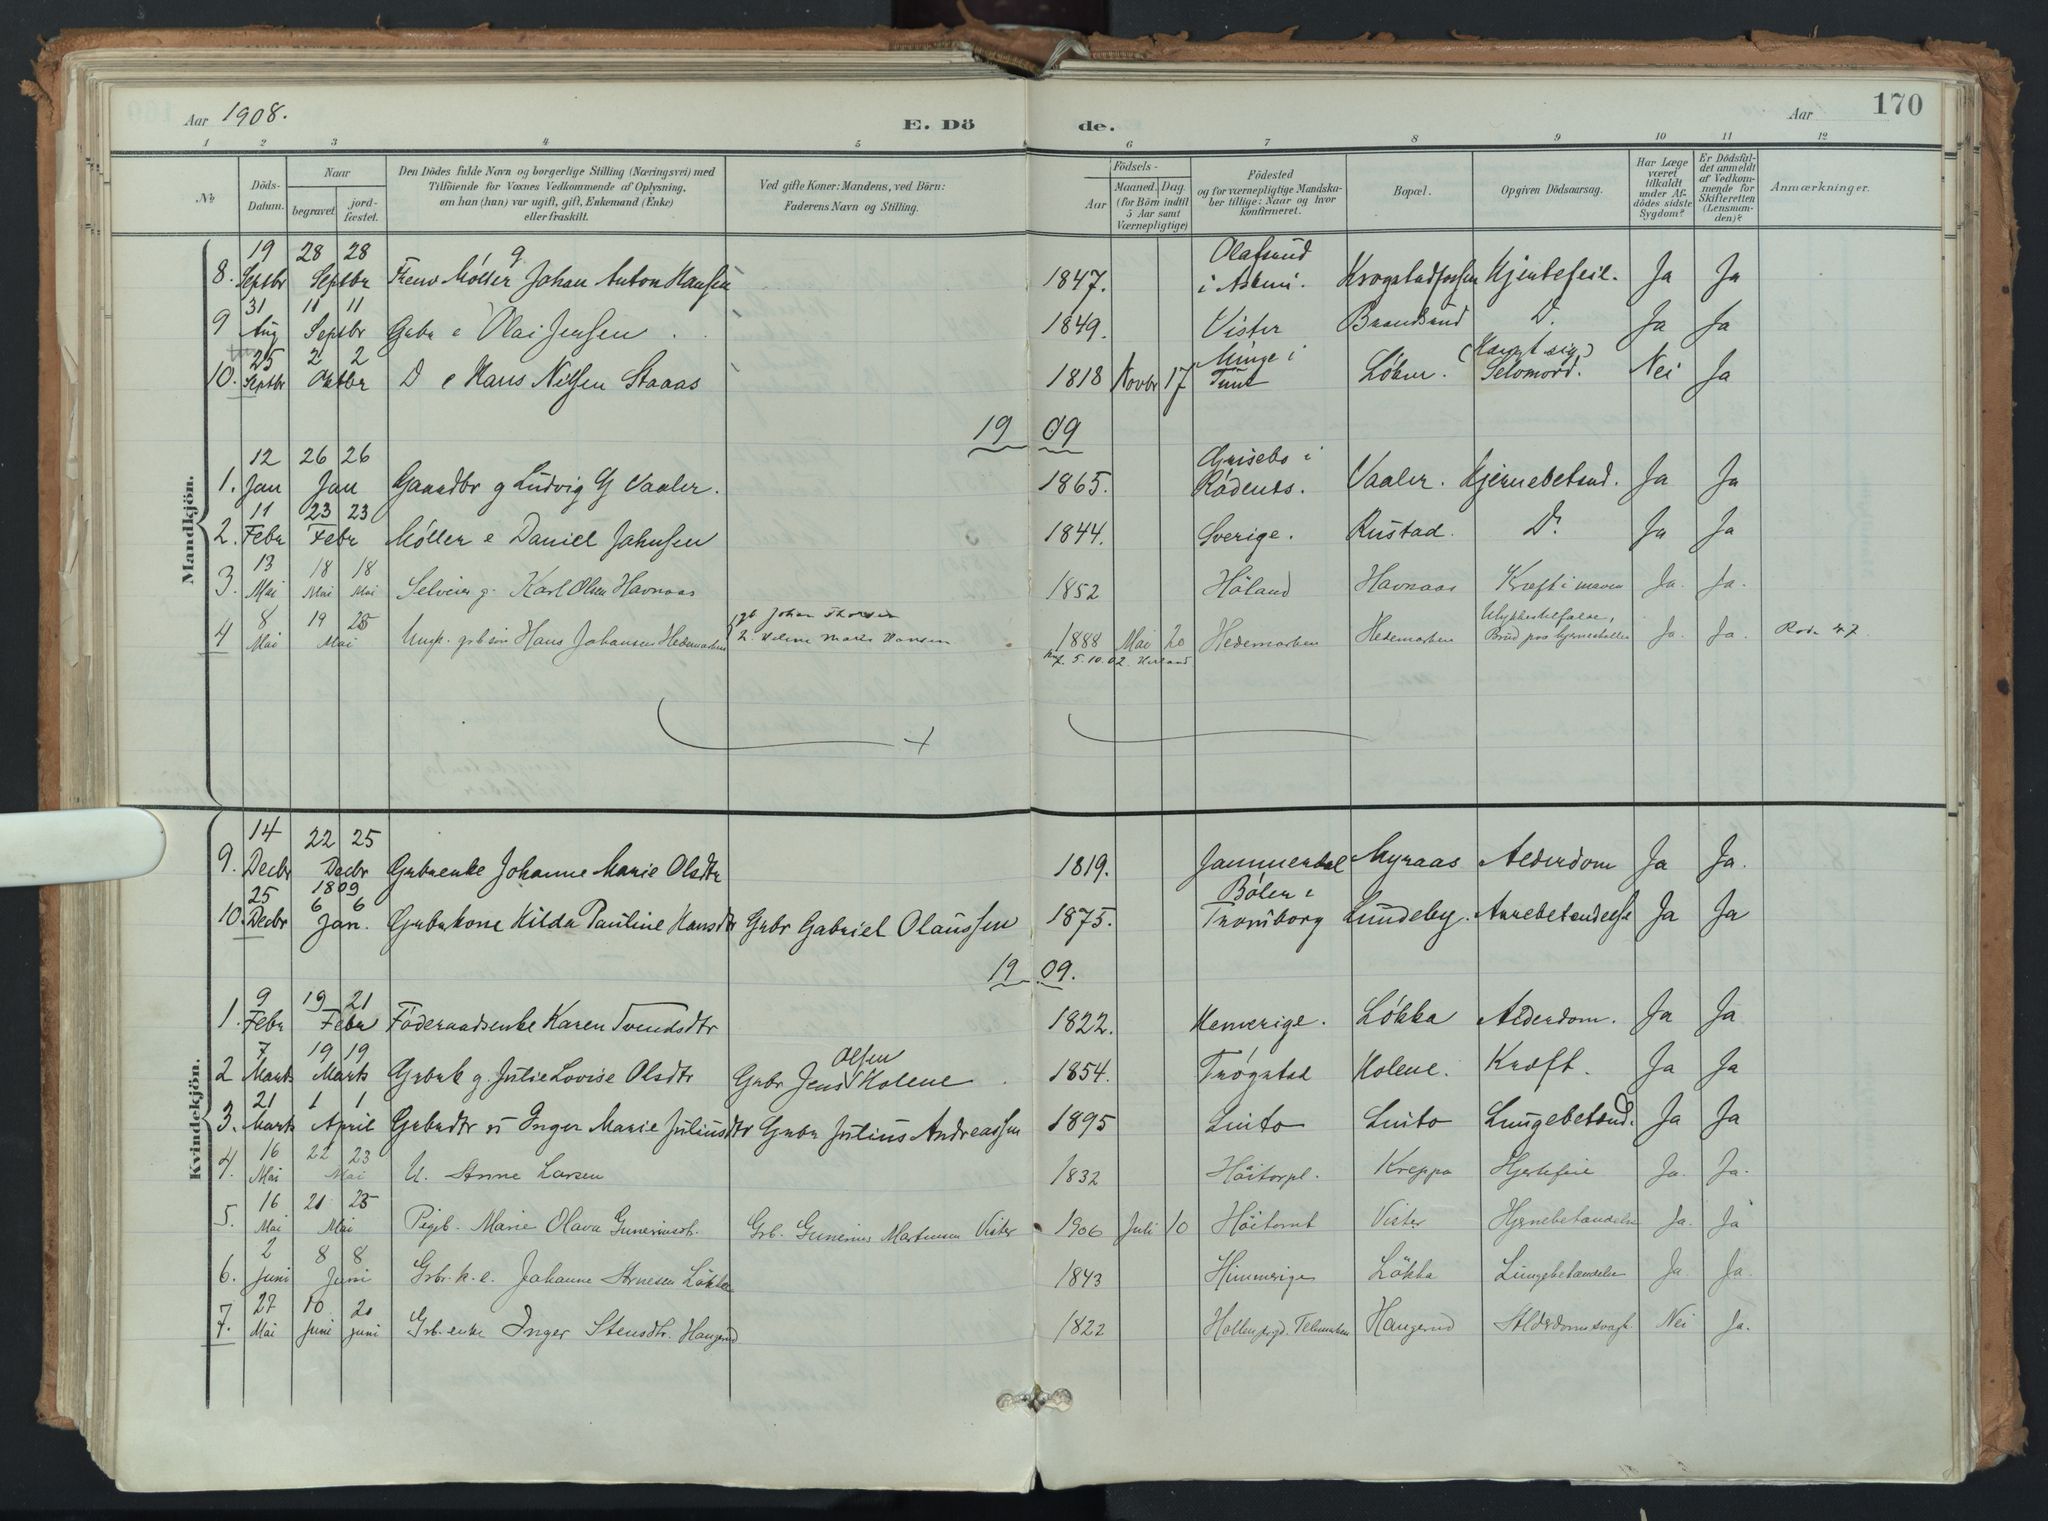 Aar 1908. E. Dö de. Aar 170
1 2 3 4 5 6 7 8 9 10 11 12
No Döds-Datum. Naar begravet. jord-fæstet. Den Dödes fulde Navn og borgerlige Stilling (Næringsvei) med Tilföiende for Voxnes Vedkommende af Oplysning, om han (hun) var ugift, gift, Enkemand (Enke) eller fraskilt. Ved gifte Koner: Mandens, ved Börn: Faderens Navn og Stilling. Födsels- Aar Maaned. Dag. (for Börn indtil 5 Aar samt Værnepligtige) Födested og for værnepligtige Mandska-ber tillige: Naar og hvor konfirmeret. Bopæl. Opgiven Dödsaarsag. Har Læge været tilkaldt under Af-dödes sidste Sygdom? Er Dödsfal-det anmeldt af Vedkom-mende for Skifteretten (Lensman-den)? Anmærkninger.
Mandkjön.
8. 19 Septbr 28 28 Septbr Møller g Johan Anton Hansen 1847. Krogstadfossen Hjertefeil. Ja Ja
9 31 Aug 11 11 Septbr Gbr e Olai Jensen 1849. Vister Brandsrud D. Ja Ja
10. 25 Septbr 2 2 Oktbr D e Hans Nilsen Staaas 1818 Novbr 17 Minge i Tunt Løken. (Hængt sig) Selvmord. Nei Ja
19 09
1. 12 Jan 26 26 Jan Gaardbr g Ludvig G Vaaler. 1865. Grisebo i Rødenes. Vaaler. Hjernebetænd. Ja Ja
2. 11 Febr 23 23 Febr Møller e Daniel Johnsen 1844. Sverige. Rustad. Do Ja Ja
3. 13 Mai 18 18 Mai Mai Selveier g. Karl Olsen Havnaas 1852 Höland Havnaas Kræft i maven Ja. Ja.
4 8 Mai 19 25 Mai Ungk. grb.sön Hans Johansen Hedemarken gb Johan Thorsen & Helene Marie Hansen 1888 Mai 20 Hedemarken Hedemarken Ulykkestilfælde, Brud paa hjerneskallen Ja. Ja.
5.10.02.
Kvindekjön.
9. 14 Decbr 22 25 Decbr Gbrenke Johanne Marie Olsdtr 1819. Jammerdal Myraas Alderdom Ja Ja.
10. 25 Decbr 1809 6 6 Jan. Gbrkone Hilda Pauline Hansdtr Gbr Gabriel Olaussen 1875. Bølen i Tromborg Lundeby. Ja Ja
19 09.
1. 9 Febr 19 21 Febr Föderaadsenke Karen Svendsdtr 1822. Hemerige. Løkka Alderdom. Ja Ja
2 7 Marts 19 19 Marts Gbrk g. Julie Lovise Olsdtr Gbr Jens Olsen Kolene 1854. Trøgstad Kolene. Kræft. Ja Ja
3. 21 Marts 1 1 April Gbrdtr u Inger Marie Juliusdtr Gbr Julius Andreassen 1895 Linto Linto Lungebetænd. Ja Ja
4. 16 Mai 22 23 Mai U. Anne Larsen 1832 Höitorpl. Kreppa Hjertefeil Ja. Ja.
5. 16 Mai 21 25 Mai Pigeb. Marie Olava Guneriusdtr. Grb. Gunerius Martinsen Vister 1906 Juli 10 Höitomt Vister Hjernebetændelse Ja. Ja
6. 2 Juni 8 8 Juni Grbr.k.e. Johanne Arnesen Løkka 1843 Himmerige Løkka Lungebetændelse Ja Ja.
7. 27 Mai 10 20 Juni Juni Grb.enke Inger Stensdtr. Haugerud 1822 Telemarken Haugerud Alderdomssvagh. Nei Ja.